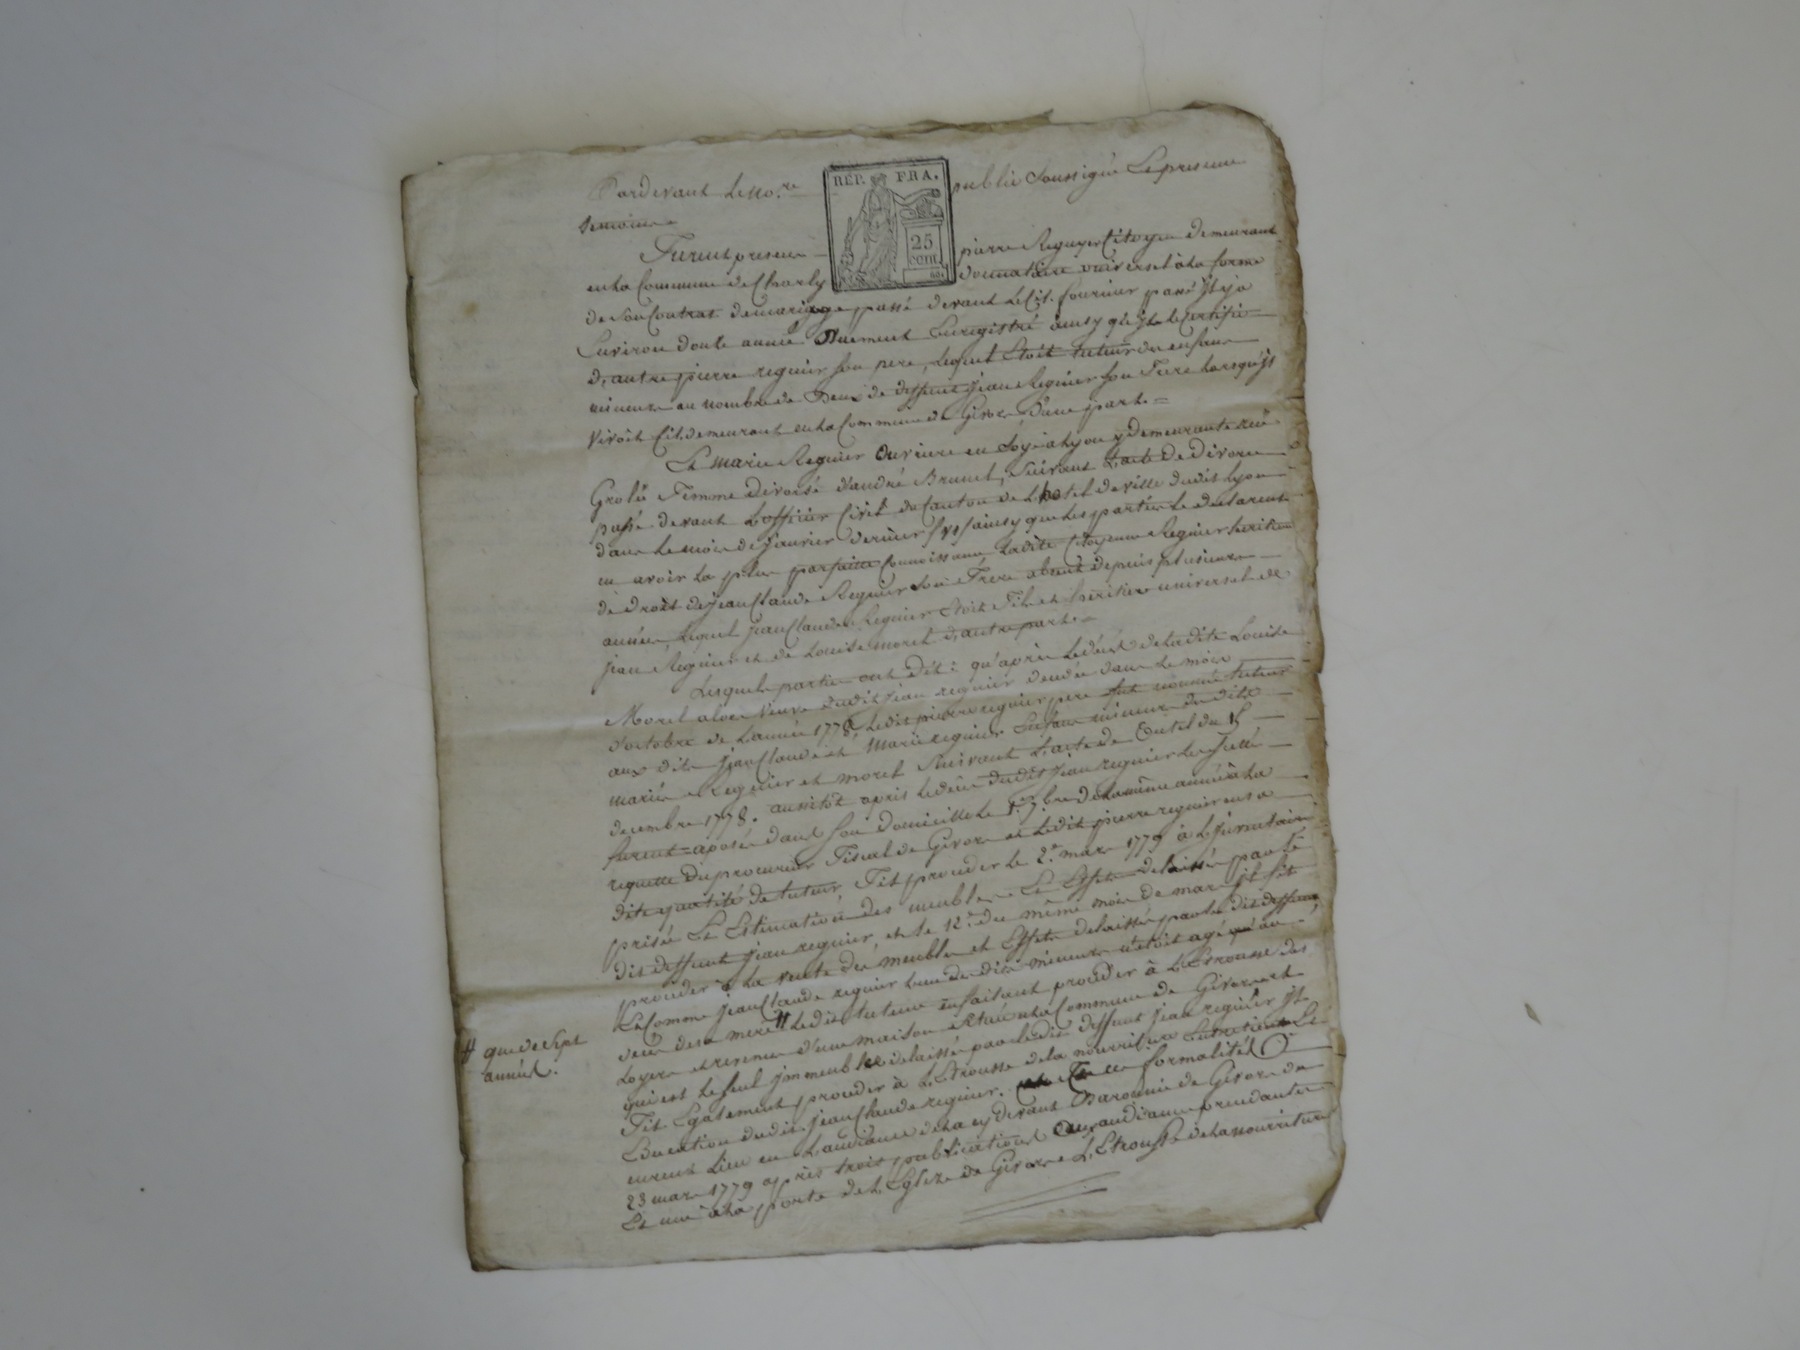 Pardevant Le no.re public Soussigné Le presence
temoins
RÉP. FRA.
25
cent.
Furent presens pierre Reguier Citoyen demeurant
en la Commune de Charly donnataire universel à la forme
de Son Contrat de mariage passé devant Le Cit. fournier passé Il y a
Environ douze années Duement Enregistré ainsy qu'il le Certifie
d'autre pierre reguier son pere, Lequel Etoit tuteur des enfans
mineurs au nombre de Deux de deffunt Jean Reguier son frere Lorsqu'il
vivoit Cit. demeurant en la Commune de Givors D'une part =
Et marie Reguier Ouvriere en Soye à Lyon y demeurante rue
Grolée Femme divorsée d'andré Brunet, Suivant L'acte de divorce
passé devant L'officier Civil du Canton de L'hotel de ville dudit Lyon
dans Le mois de Janvier dernier ainsy que Les parties Le declarent
en avoir La plus parfaitte Connoissance Ladite Citoyenne Reguier heritiere
de droit de Jean Claude Reguier Son Frere absent depuis plusieurs
années Lequel Jean Claude Reguier Etoit Fils et heritier universel de
Jean Reguier et de Louise morel d'autre part =
Lesquels parties ont dit : qu'après Le décès de Ladite Louise
Morel alors Veuve dudit Jean reguier décédée dans Le mois
d'octobre de L'année 1778 Ledit pierre reguier pere fut nommé tuteur
aux dits Jean Claude et Marie reguier Enfans mineurs desdits
mariés Reguier et morel Suivant L'acte de Tutel du 15
decembre 1778. aussitôt après Le décès dudit Jean reguier Les Scellés
furent aposés dans son domicille Le 1.er 7.bre de la même année à La
requette du procureur Fiscal de Givors et Ledit pierre reguier en sa
dite quatité de tuteur Fit proceder Le 2.e mars 1779 à L'Inventaire
prisée Et Estimation des meubles Et Effets delaissés par Le
dit deffunt Jean reguier, et le 12.e du même mois de mars Il fit
proceder à La vente des meubles et Effets delaissés par Le dit deffunt,
Et Comme Jean Claude reguier L'un desdits mineurs n'etoit agé qu'au
décès de sa mere # Ledit tuteur En faisant proceder à L'Etrousse des
Loyers et revenus d'une maison située en La Commune de Givors et
qui est Le seul Immeuble delaissé par Ledit deffunt Jean reguier Il
Fit Egalement proceder à L'Etrousse de la nourriture Entretient Et
Education dudit Jean Claude reguier. formalités
eurent Lieu en L'audiance de la cy devant Baronnie de Givors du
23 mars 1779 après trois publications Deux audiances precedantes
Et une à la porte de L'Eglize de Givors L'Etrousse de la nourriture
# que de Sept
années.